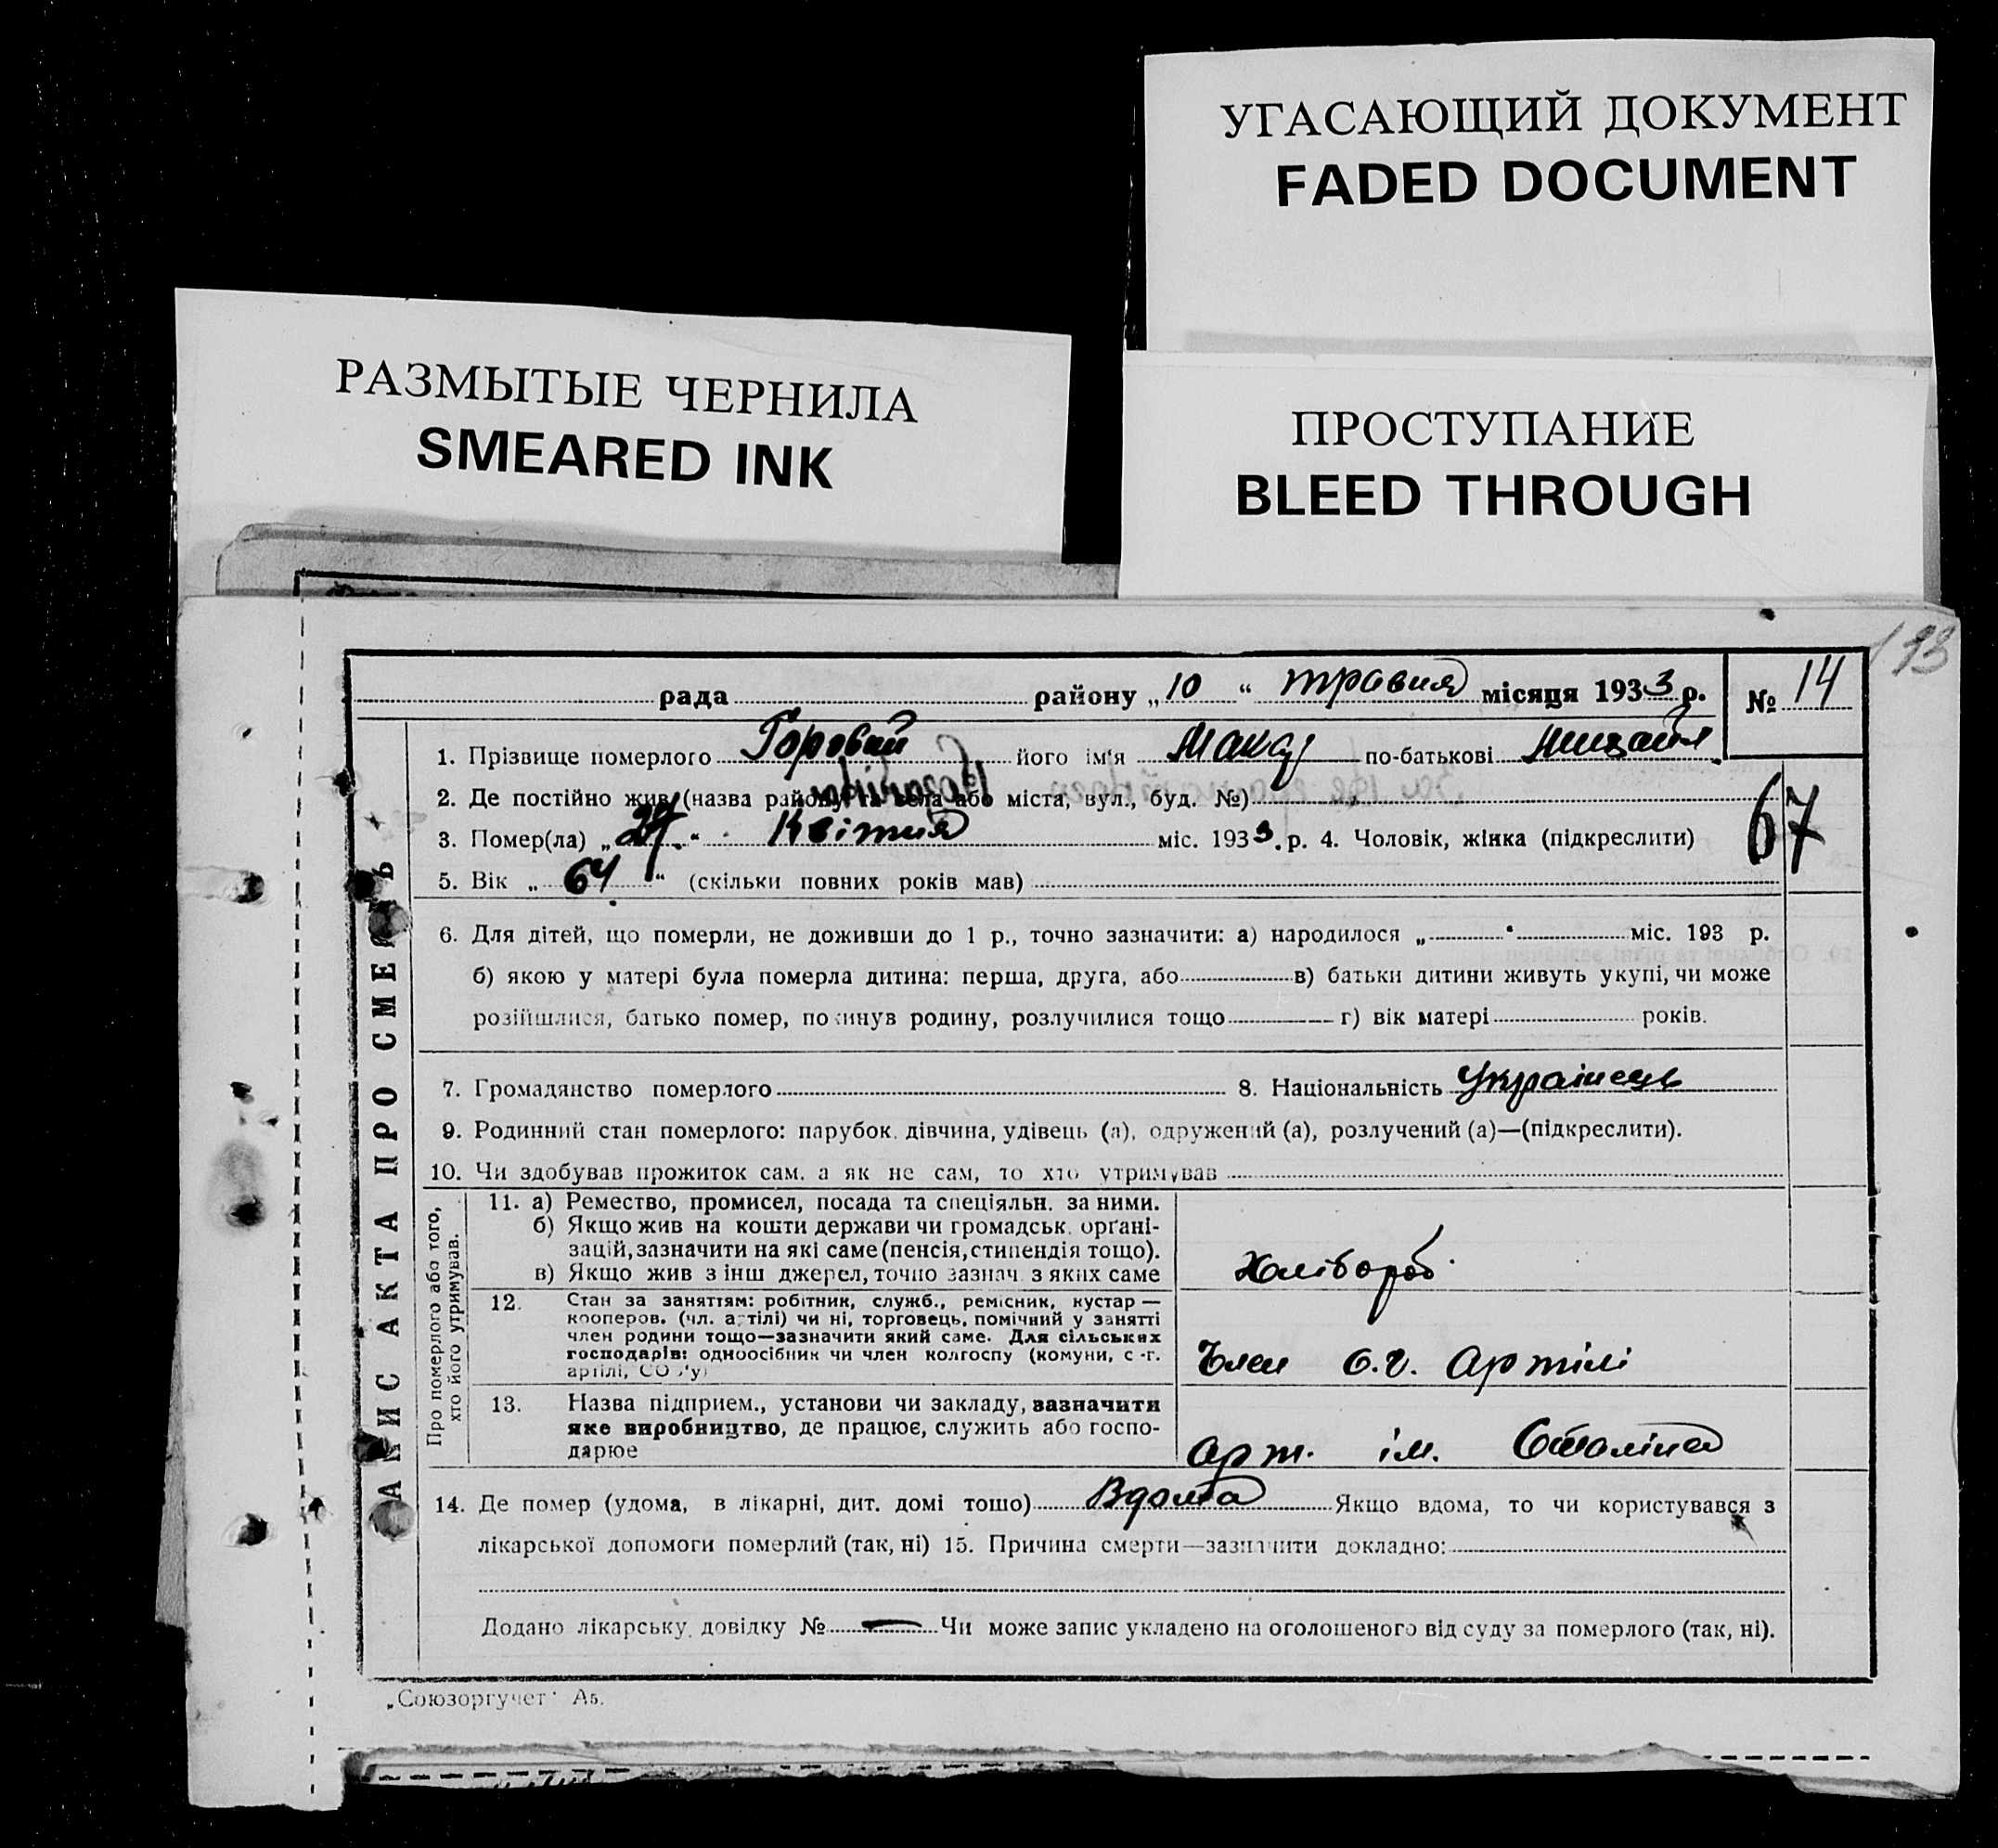 УГАСАЮЩИЙ ДОКУМЕНТ
FADED DOCUMENT
РАЗМЫТЫЕ ЧЕРНИЛА
SMEARED INK
ПРОСТУПАНИЕ
BLEED THROUGH
193
рада району „10“ травня місяця 1933 р. № 14
1. Прізвище померлого Горовий його ім'я Макар по-батькові
2. Де постійно жив (назва району та села або міста, вул., буд. №)
67
3. Помер(ла) „27“ Квітня міс. 1933 р. 4. Чоловік, жінка (підкреслити)
5. Вік „64“ (скільки повних років мав)
6. Для дітей, що померли, не доживши до 1 р., точно зазначити: а) народилося „ “ міс. 193 р.
б) якою у матері була померла дитина: перша, друга, або в) батьки дитини живуть укупі, чи може
розійшлися, батько помер, покинув родину, розлучилися тощо г) вік матері років.
7. Громадянство померлого 8. Національність Українець
9. Родинний стан померлого: парубок, дівчина, удівець (а), одружений (а), розлучений (а)—(підкреслити).
10. Чи здобував прожиток сам, а як не сам, то хто утримував
Про померлого або того, хто його утримував.
11. а) Ремество, промисел, посада та спеціяльн. за ними.
б) Якщо жив на кошти держави чи громадськ. органі-
зацій, зазначити на які саме (пенсія, стипендія тощо).
в) Якщо жив з інш джерел, точно зазнач. з яких саме
Хлібороб
12. Стан за заняттям: робітник, служб., ремісник, кустар—
кооперов. (чл. артілі) чи ні, торговець, помічний у занятті
член родини тощо—зазначити який саме. Для сільських
господарів: одноосібник чи член колгоспу (комуни, с.-г.
артілі, СОЗ'у)
Член с.г. Артілі
13. Назва підприєм., установи чи закладу, зазначити
яке виробництво, де працює, служить або госпо-
дарює
Арт. ім. Сталіна
14. Де помер (удома, в лікарні, дит. домі тощо) Вдома Якщо вдома, то чи користувався з
лікарської допомоги померлий (так, ні) 15. Причина смерти—зазначити докладно:
Додано лікарську довідку № — Чи може запис укладено на оголошеного від суду за померлого (так, ні).
ЗАПИС АКТА ПРО СМЕРТЬ
„Союзоргучет“ А5.